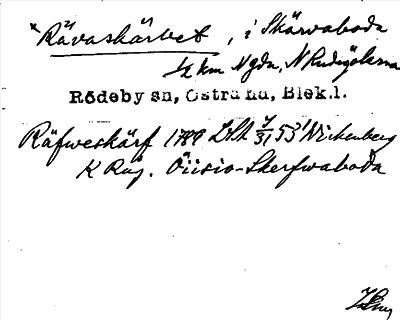 *Rävaskärvet, i Skärvaboda
½ km N gdn, N Rudugölarna
Rödeby sn, Östra hd, Blek.l.
Räfweskärf 1789 Lstk 7/31 53 Wickenberg
K Raj. Öiisio-Skerfwaboda